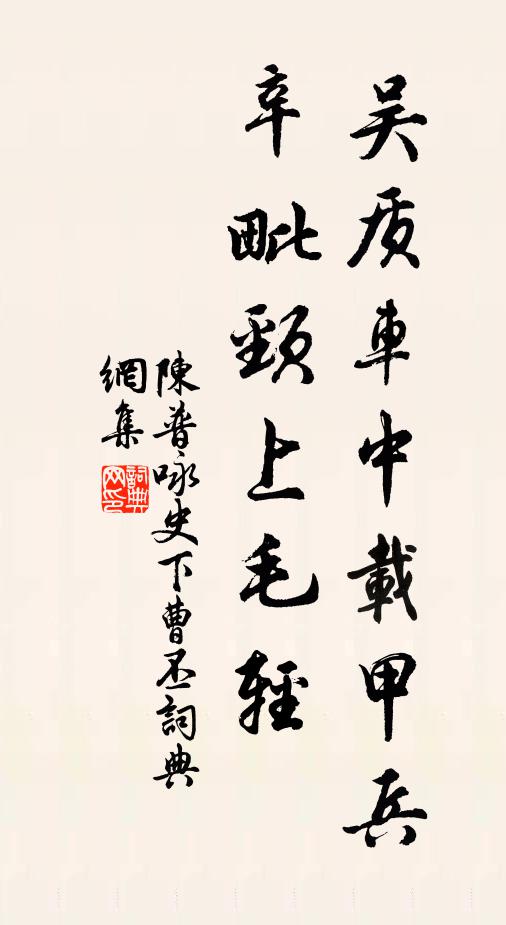 吴质車中載甲兵
辛毗頸上毛輕
陳普咏史下曹丕詞典
網集
詞典
网印